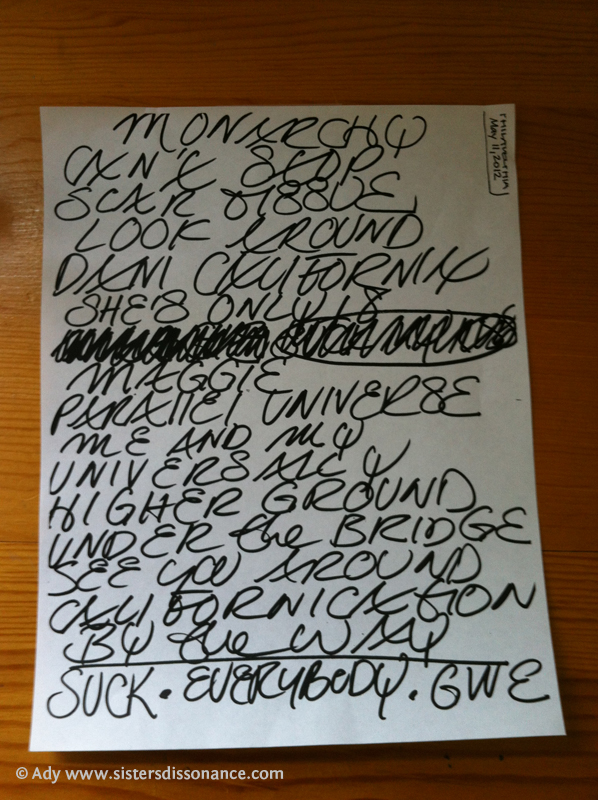 MONARCHY
CAN'T STOP
SCAR TISSUE
LOOK AROUND
DANI CALIFORNIA
SHE'S ONLY 18
MAGGIE
PARALLEL UNIVERSE
ME AND MY
UNIVERSALLY
HIGHER GROUND
UNDER the BRIDGE
SEE YOU AROUND
CALIFORNICATION
BY the WAY
SUCK. EVERYBODY. GWE
PHILADELPHIA
May 11, 2012
© Ady www.sistersdissonance.com